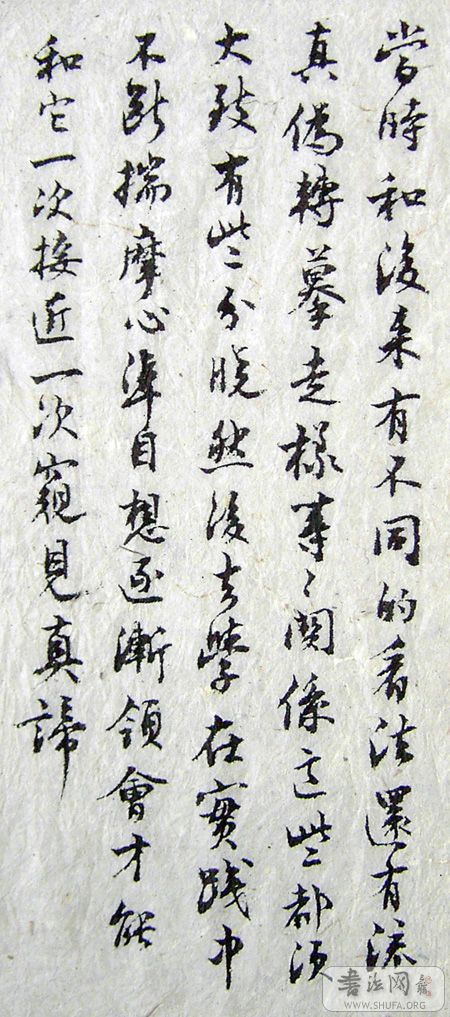 當時和後来有不同的看法還有流
真偽轉摹走樣等々關係這些都須
大致有些分曉然後去學在實踐中
不斷揣摩心準目想逐漸領會才能
和它一次接近一次窺見真諦
書法网
WWW.SHUFA.ORG